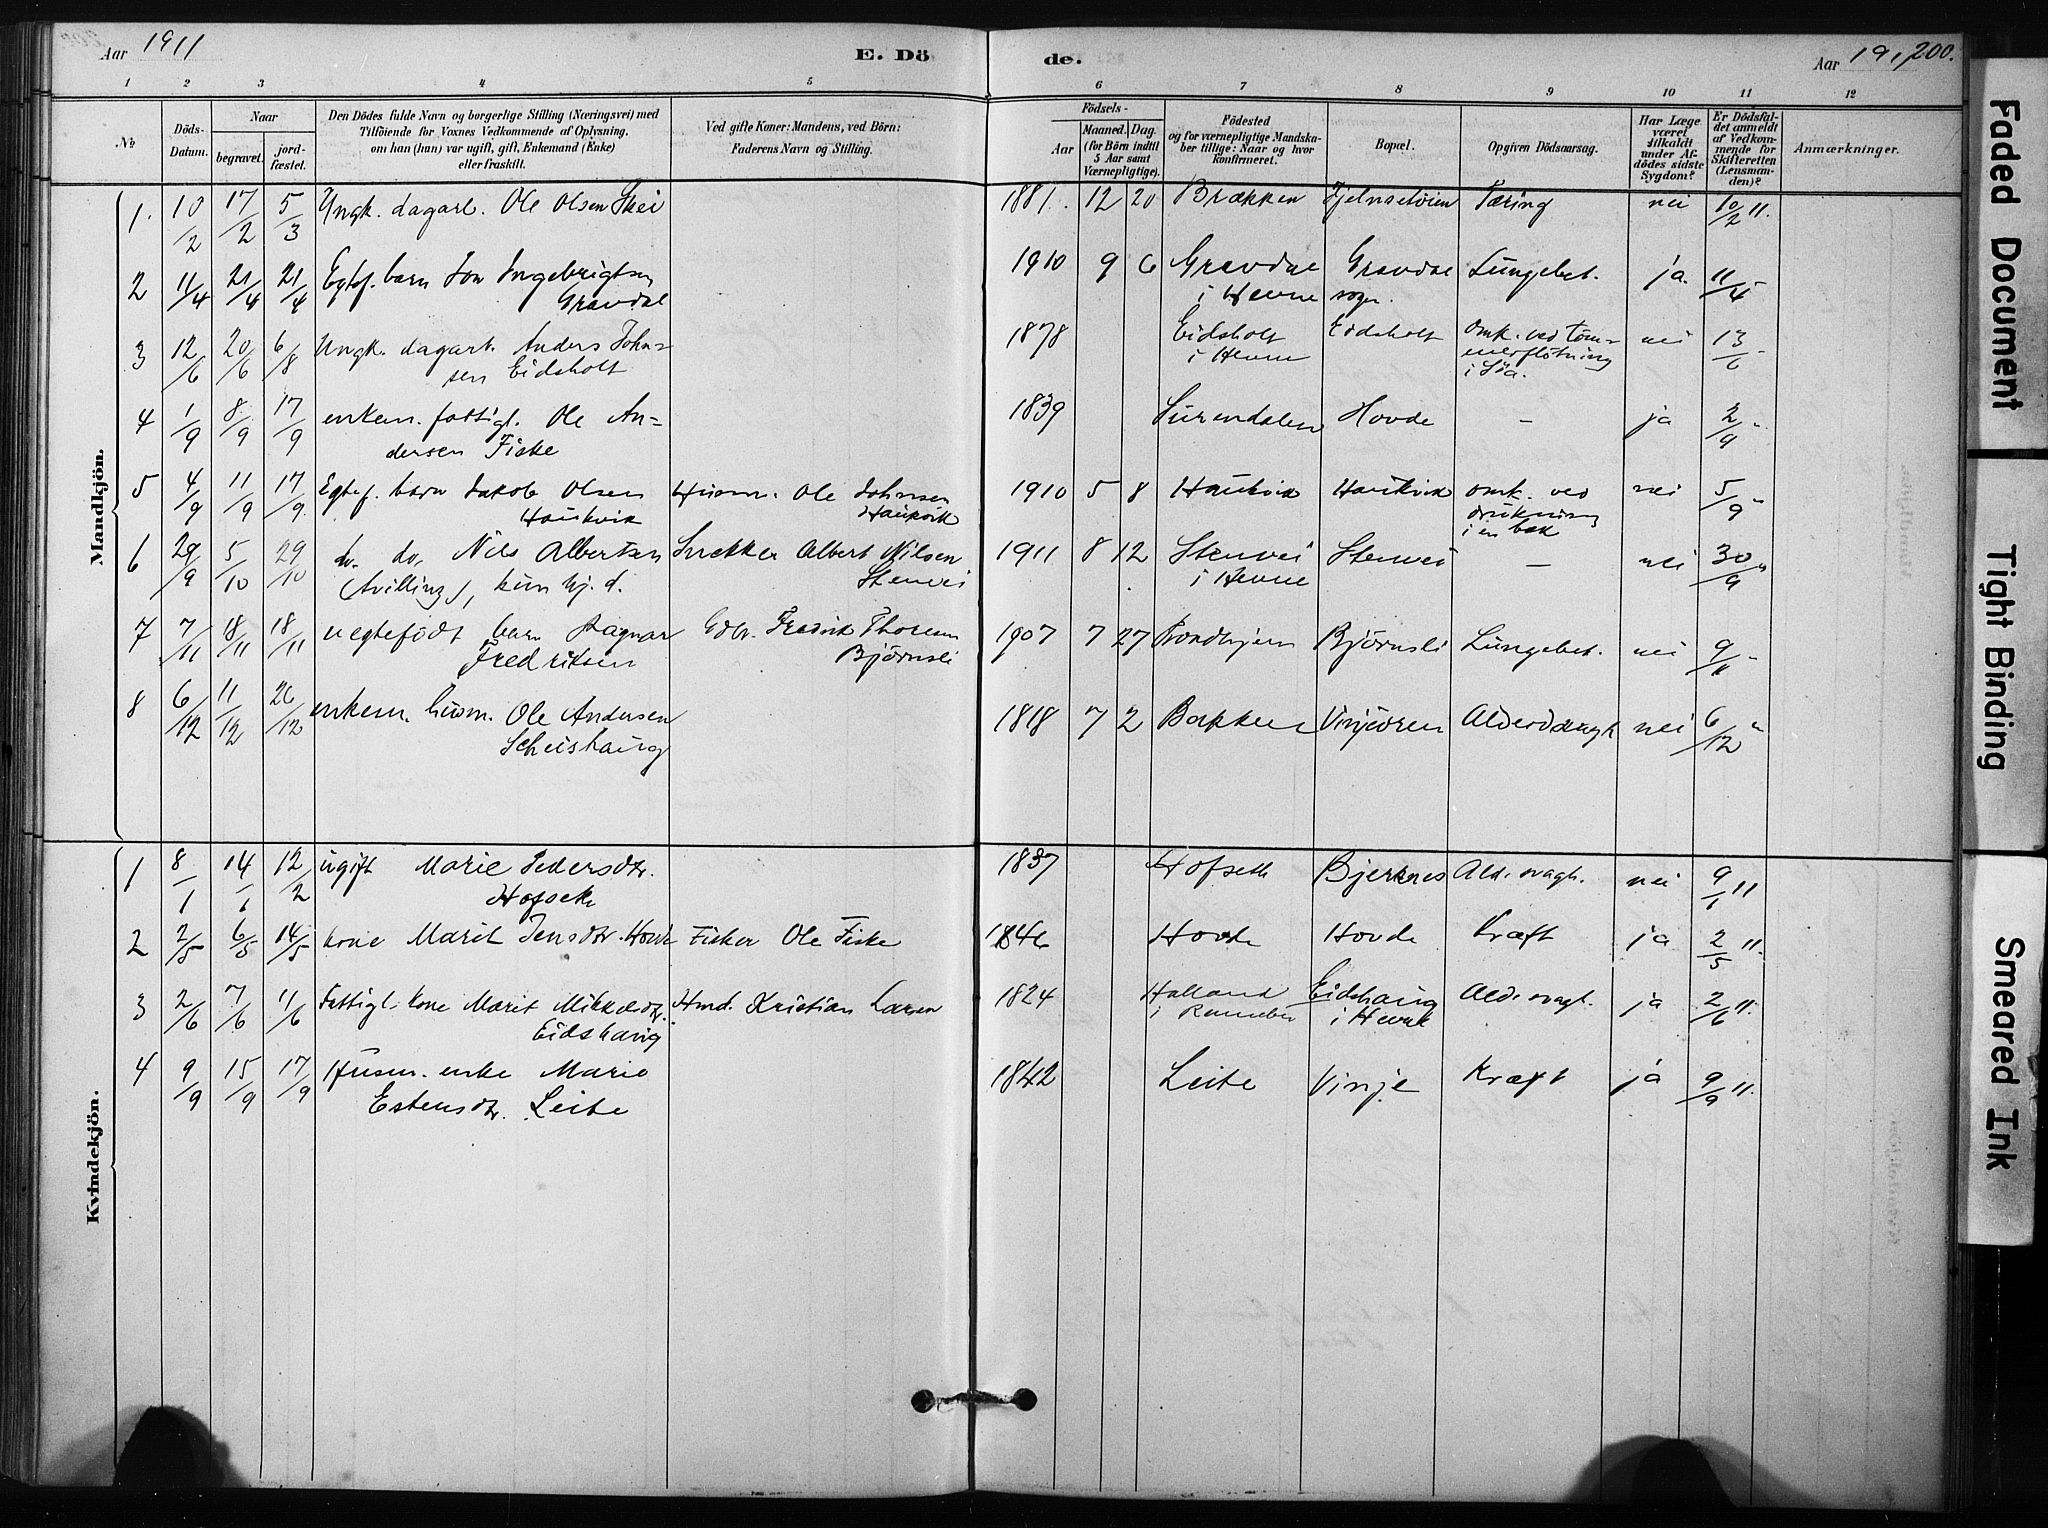 Aar 1911 E. Döde. Aar 191 200.
1 2 3 4 5 6 7 8 9 10 11 12
№
Döds-Datum.
Naar
begravet. jordfæstet.
Den Dödes fulde Navn og borgerlige Stilling (Næringsvei) med
Tilföiende for Voxnes Vedkommende af Oplysning,
om han (hun) var ugift, gift, Enkemand (Enke)
eller fraskilt.
Ved gifte Koner: Mandens, ved Börn:
Faderens Navn og Stilling.
Födsels-
Aar Maaned. Dag.
(for Börn indtil
5 Aar samt
Værnepligtige).
Födested
og for værnepligtige Mandska-
ber tillige: Naar og hvor
konfirmeret.
Bopæl.
Opgiven Dödsaarsag.
Har Læge
været
tilkaldt
under Af-
dödes sidste
Sygdom?
Er Dödsfal-
det anmeldt
af Vedkom-
mende for
Skifteretten
(Lensman-
den)?
Anmærkninger.
Mandkjön.
1. 10/2 17/2 5/3 Ungk. dagarb. Ole Olsen Skei 1881. 12 20 Brækken Fjelnsetöien Tæring nei 10/2 11.
2 11/4 21/4 21/4 Egtef. barn Jon Ingebrigtsen 1910 9 6 Gravdal Gravdal Lungebet. ja. 11/4
Gravdal i Hevne sogn.
3 12/6 20/6 6/8 Ungk. dagarb. Anders John- 1878 Eidsholt Eidsholt Omk. ved töm- nei 13/6 "
sen Eidsholt i Hevne merflötning
i Söa.
4 1/9 8/9 17/9 enkem. fattigl. Ole An- 1839 Surendalen Hovde — ja 2/9 "
dersen Fiske
5 4/9 11/9 17/9 Egtef. barn Jakob Olsen Husm. Ole Johnsen 1910 5 8 Haukvik Haukvik omk. ved nei 5/9 "
Haukvik Haukvik drukning
i en bæk
6 29/9 5/10 29/10 do. do. Nils Albertsen Snekker Albert Nilsen 1911 8 12 Stenvei Stenvei — nei 30/9 "
(tvilling), kun hj. d. Stenvei i Hevne
7 7/11 18/11 18/11 uegtefödt barn Ragnar Gdbr. Fredrik Thoresen 1907 7 27 Trondhjem Björnsli Lungebet. nei 9/11 "
Fredriksen Björnsli
8 6/12 11/12 26/12 enkem. husm. Ole Andersen 1818 7 2 Bakken Vinjeören Alderdsvagh. nei 6/12 "
Scheishaug
Kvindekjön.
1 8/1 14/1 12/2 ugift Marie Pedersdtr. 1837 Hofseth Bjerknes Ald. svagh. nei 9/1 11
Hofseth
2 2/5 6/5 14/5 kone Marit Jensdtr. Hovde Fisker Ole Fiske 1846 Hovde Hovde Kræft ja 2/5 11.
3 2/6 7/6 11/6 Fattigl. kone Marit Mikkelsdtr. Hmd. Kristian Larsen 1824 Halland Eidshaug Ald. svagh. ja 2/6 11.
Eidshaug i Rennebu i Hevne
4 9/9 15/9 17/9 Husm. enke Marie 1842 Leite Vinje Kræft ja 9/9 11.
Estensdtr. Leite
Faded Document
Tight Binding
Smeared Ink